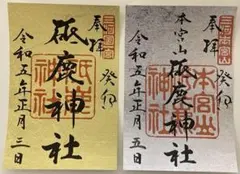 奉拝
癸卯
砥鹿神社
令和五年正月三日
奉拝
癸卯
本宮山
砥鹿神社
本宮山
令和五年正月五日